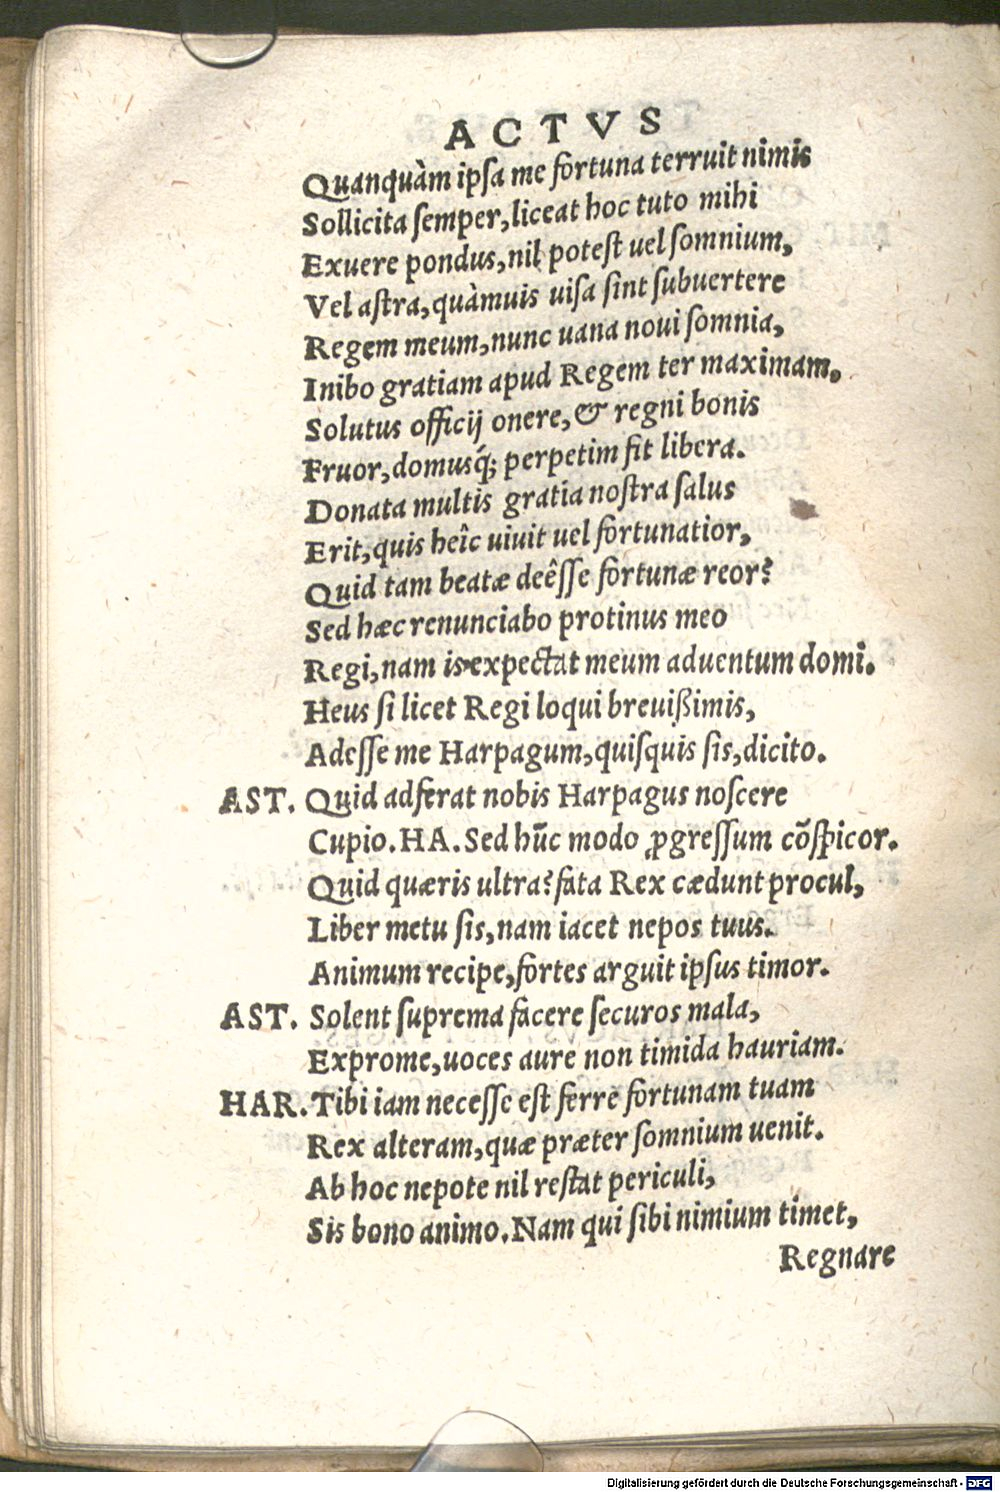 ACTVS
Quanquàm ipſa me fortuna terruit nimis
Sollicita ſemper, liceat hoc tuto mihi
Exuere pondus, nil poteſt uel ſomnium,
Vel aſtra, quàmuis uiſa ſint ſubuertere
Regem meum, nunc uana noui ſomnia,
Inibo gratiam apud Regem ter maximam,
Solutus officij onere, & regni bonis
Fruor, domusq́; perpetim fit libera.
Donata multis gratia noſtra ſalus
Erit, quis heîc uiuit uel fortunatior,
Quid tam beatæ deêſſe fortunæ reor?
Sed hæc renunciabo protinus meo
Regi, nam is expectat meum aduentum domi.
Heus ſi licet Regi loqui breuißimis,
Adeſſe me Harpagum, quiſquis ſis, dicito.
AST. Quid adferat nobis Harpagus noſcere
Cupio. HA. Sed hūc modo ꝓgreſſum cōſpicor.
Quid quæris ultra? fata Rex cædunt procul,
Liber metu ſis, nam iacet nepos tuus.
Animum recipe, fortes arguit ipſus timor.
AST. Solent ſuprema facere ſecuros mala,
Exprome, uoces aure non timida hauriam.
HAR. Tibi iam neceſſe eſt ferre fortunam tuam
Rex alteram, quæ præter ſomnium uenit.
Ab hoc nepote nil reſtat periculi,
Sis bono animo. Nam qui ſibi nimium timet,
Regnare
Digitalisierung gefördert durch die Deutsche Forschungsgemeinschaft - DFG